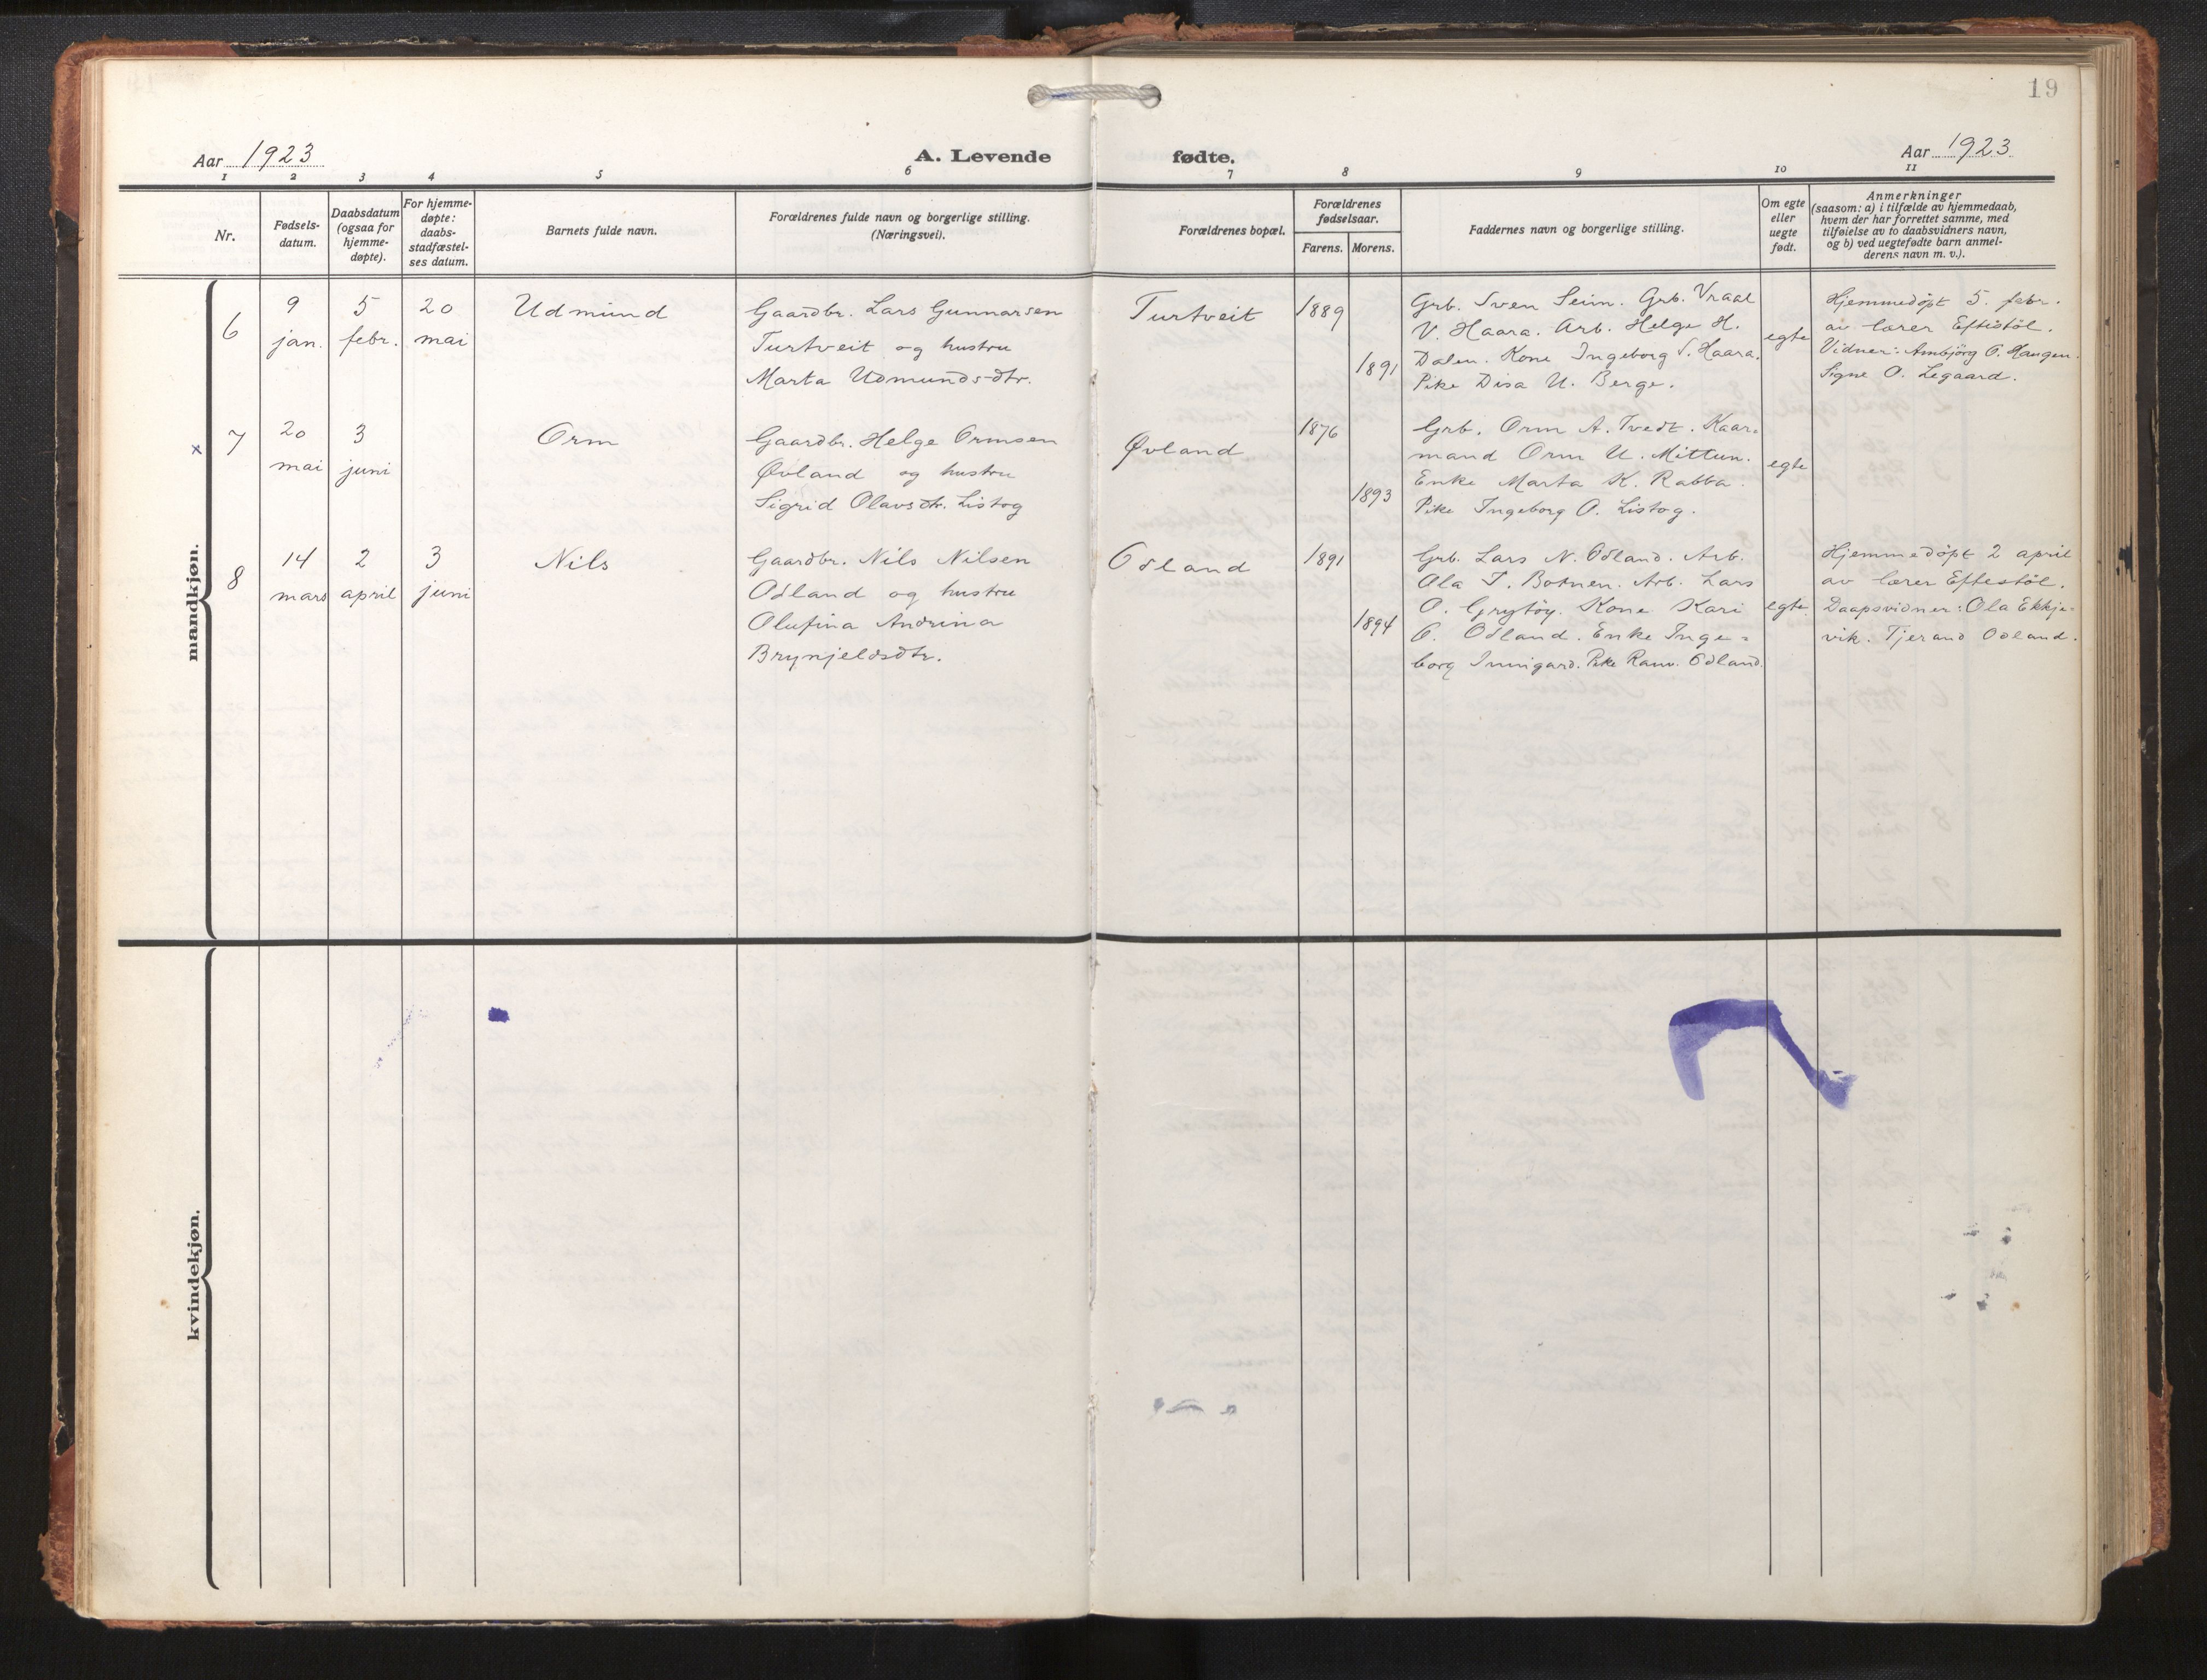 19
Aar 1923
A. Levende
fødte.
Aar 1923
1 2 3 4 5 6 7 8 9 10 11
Nr.
Fødsels-
datum.
Daabsdatum
(ogsaa for
hjemme-
døpte).
For hjemme-
døpte:
daabs-
stadfæstel-
ses datum.
Barnets fulde navn.
Forældrenes fulde navn og borgerlige stilling.
(Næringsvei).
Forældrenes bopæl.
Forældrenes
fødselsaar.
Farens. Morens.
Faddernes navn og borgerlige stilling.
Om egte
eller
uegte
født.
Anmerkninger
(saasom: a) i tilfælde av hjemmedaab,
hvem der har forrettet samme, med
tilføielse av to daabsvidners navn,
og b) ved uegtefødte barn anmel-
derens navn m. v.).
mandkjøn.
6
9
jan.
5
febr.
20
mai
Udmund
Gaardbr. Lars Gunnarsen
Turtveit og hustru
Marta Udmundsdtr.
Turtveit
1889
1891
Grb. Sven Seim. Grb. Vraal
V. Haara. Arb. Helge H.
Dalen. Kone Ingeborg S. Haara.
Pike Disa U. Berge.
egte
Hjemmedöpt 5. febr.
av lærer Eftestöl.
Vidner: Ambjörg O. Haugen.
Signe O. Legaard.
x 7
20
mai
3
juni
Orm
Gaardbr. Helge Ormsen
Øvland og hustru
Sigrid Olavsdtr. Listog
Øvland
1876
1893
Grb. Orm A. Tvedt. Kaar-
mand Orm U. Mittun.
Enke Marta K. Rabba.
Pike Ingeborg O. Listog.
egte
8
14
mars
2
april
3
juni
Nils
Gaardbr. Nils Nilsen
Odland og hustru
Olufina Andrina
Brynjeldsdtr.
Odland
1891
1894
Grb. Lars N. Odland. Arb.
Ola T. Botnen. Arb. Lars
O. Grytöy. Kone Kari
O. Odland. Enke Inge-
borg Innigard. Pike Ranv. Odland
egte
Hjemmedöpt 2 april
av lærer Eftestöl.
Daapsvidner: Ola Ekkje-
vik. Tjerand Odland.
kvindekjøn.